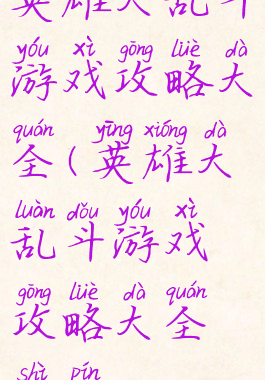 英雄大乱斗
yóu xì gōng lüè dà
游戏攻略大
quán yīng xióng dà
全(英雄大
luàn dǒu yóu xì
乱斗游戏
gōng lüè dà quán
攻略大全
shì pín